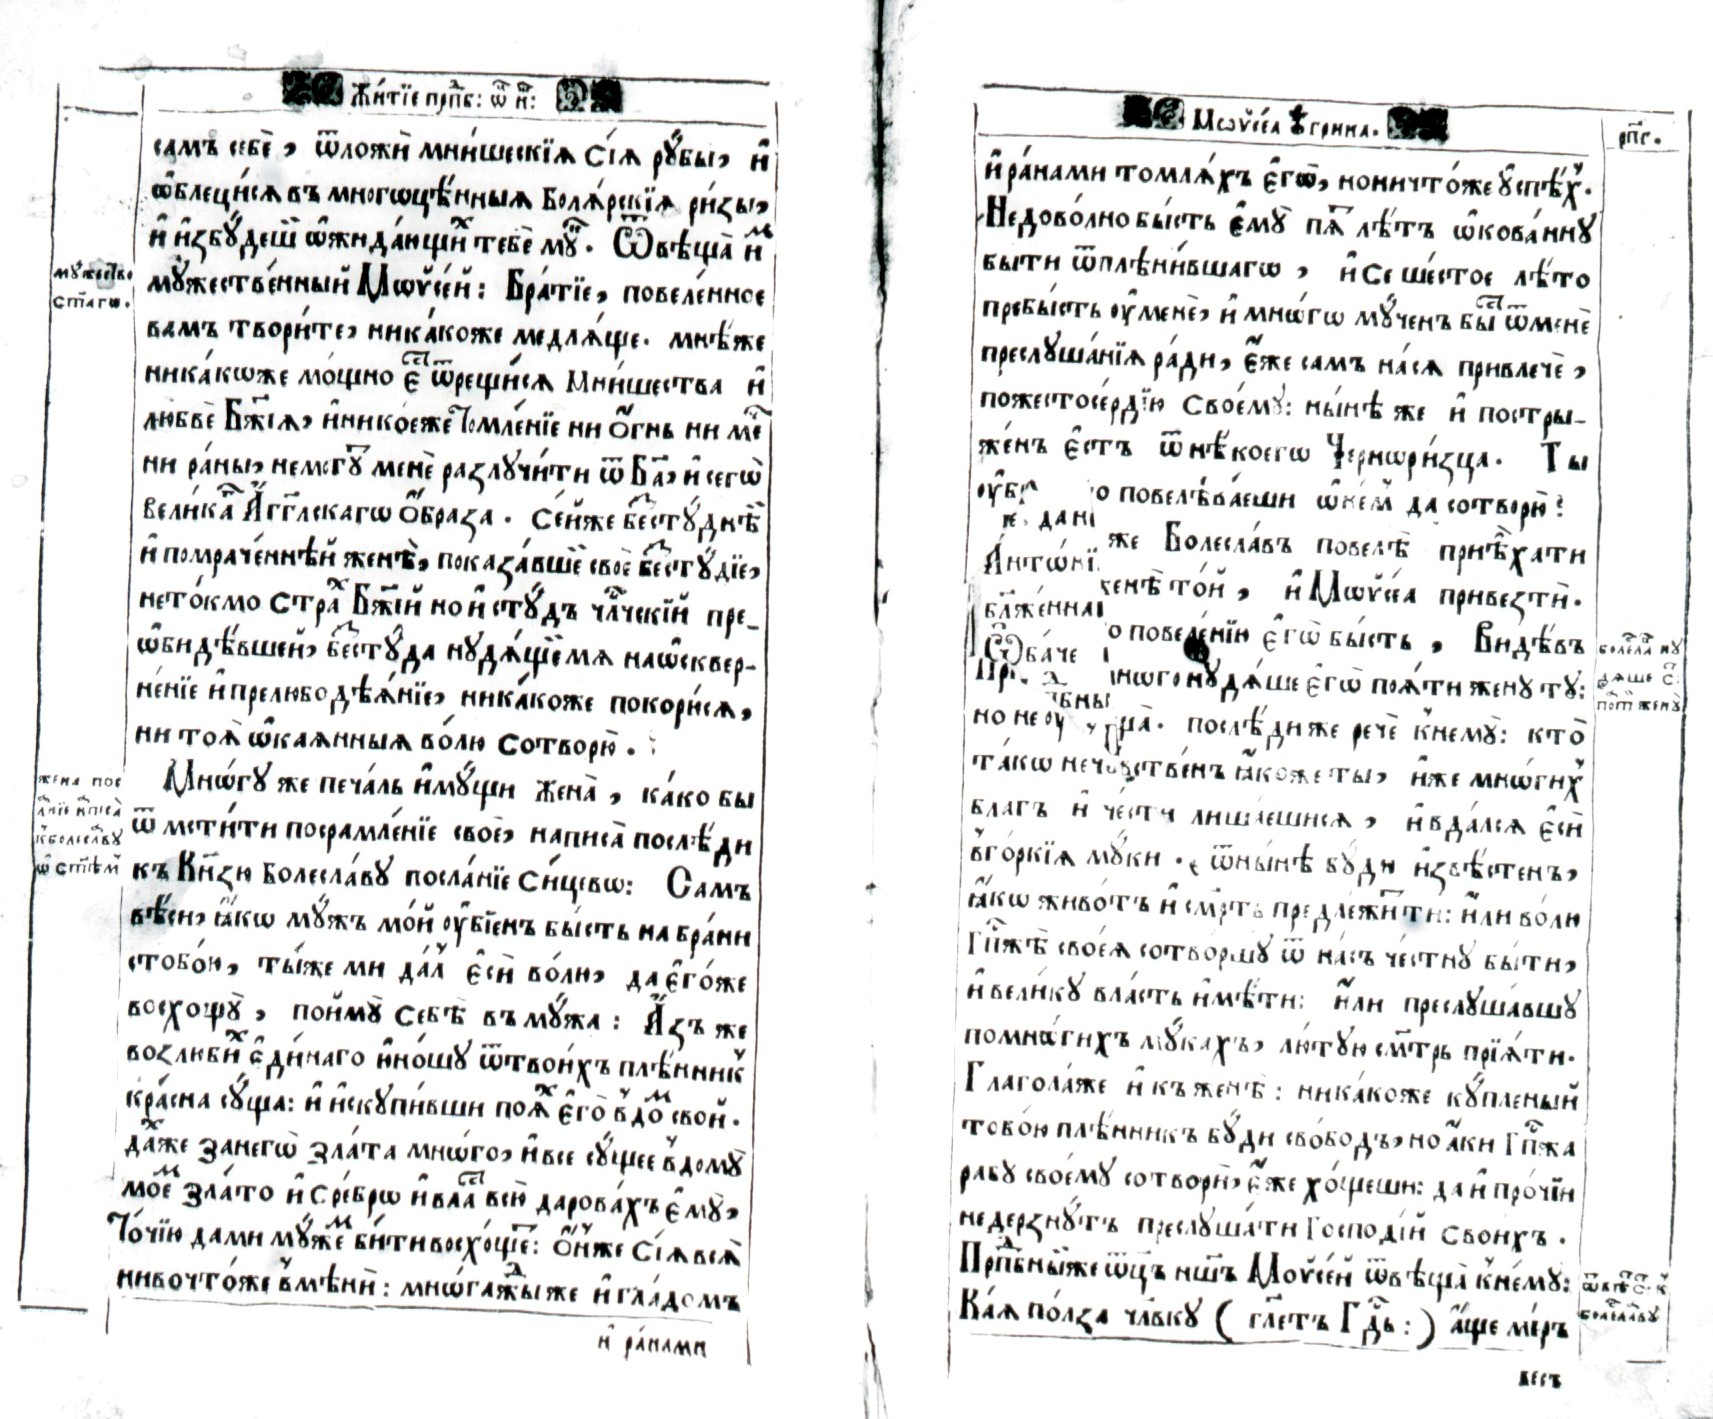 Жи́тїе прпⷣб: ѿ н҃:
самъ себѐ, ѿложѝ мни́шескїѧ сїѧ̀ рꙋ́бы, и҆
ѡ҆блеци́сѧ въ многоцѣ́нныѧ Болѧ́рскїѧ ри́зы,
и҆ и҆збꙋ́деш ѡ҆жида́ющиⷯ тебѐ мꙋ́. Ѿвѣща̀ иⷨ
мꙋ́жественный Мѡѷсе́й: Бра́тїе, повеле́нное
мꙋ́жество
ст҃а́гѡ.
вамъ твори́те, ника́коже медлѧ́ще. мнѣ́же
ника́коже мо́щно єⷭ҇ ѿрещи́сѧ Мни́шества и҆
любвѐ Бж҃їѧ, и҆никое́же Томле́нїе ни ѻ҆́гнь ни ме́
ни ра́ны, немогꙋ́ менѐ разлꙋчи́ти ѿ Бг҃а, и҆ сегѡ̀
вели́ка А҆́гг҃лскагѡ ѻ҆́браза. Се́йже бестꙋ́днѣй
и҆ помраче́ннѣй женѣ̀, показа́вшей своѐ бестꙋ́дїе,
нето́кмо страⷯ Бж҃їй но и҆ стꙋ́дъ чл҃ческїй пре_
ѡ҆би́дѣвшей, бестꙋ́да нꙋдѧ́щей мѧ на ѡ҆сквер-
не́нїе и҆ прелюбодѣѧ́нїе, ника́коже покорю́сѧ,
ни тоѧ̀ ѡ҆каѧ́нныѧ во́лю сотворю̀.
Мно́гꙋ же печа́ль и҆мꙋ́щи Жена̀, ка́ко бы
ѿмсти́ти посрамле́нїе своѐ, написа̀ послѣ́ди
къ Кн҃зю Болесла́вꙋ посла́нїе си́цево: Самъ
жена пос
ла́нїе написа̀
к Болеславꙋ
ѡ҆ ст҃ѣ́мⸯ
вѣ́си, ꙗ҆́кѡ мꙋ́жъ мо́й оу҆бїе́нъ бы́сть на бра́ни
стобо́ю, ты́же ми да́лⸯ є҆сѝ во́лю, да є҆го́же
восхощꙋ̀, поймꙋ̀ себѣ̀ въ мꙋ́жа: А҆́зъ же
возлюби́ⷯ є҆ди́наго ю҆но́шꙋ ѿ твои́хъ плѣ́нникⸯ
кра́сна сꙋ́ща: и҆ и҆скупи́вши поѧⷯ є҆го̀ в̾ до́ⷨ свой.
да́ⷯже за негѡ̀ зла́та мно́го, и҆ все сꙋ́щее в̾ домꙋ̀
мое́ⷨ зла́то и҆ сребрѡ и҆ вла́ⷭ҇ всю̀ дарова́хъ є҆мꙋ̀,
То́чїю да ми мꙋ́жеⷨ бы́ти восхо́щеⷮ: ѻ҆́нже сїѧ̀ всѧ̀
ни во что́же в̾мѣнѝ: мно́гаⷤды же и҆ гла́домъ
и҆ ра́нами
Мѡѷсе́а Ѹ҆грина.
рп҃г.
и҆ ра́нами томлѧ́хъ є҆гѡ̀, но ничто́же ꙋ҆спѣ́хⸯ.
Недово́лно бы́сть є҆мꙋ̀ пѧⷮ лѣ́тъ ѡ҆кова́ннꙋ
бы́ти ѿ плѣни́вшагѡ, и҆ Се шесто́е лѣ́то
пребы́сть оу҆ менѐ, и҆ мно́гѡ мꙋ́ченъ быⷭ҇ ѿ менѐ
преслꙋша́нїѧ ра́ди, є҆́же самъ на́сѧ привлечѐ,
по жестосе́рдїю своемꙋ̀: нн҃ѣ же и҆ постри_
же́нъ є҆́стъ ѿ нѣ́коегѡ Черноризца. Ты
оу҆б о повелѣва́еши ѡ҆ не́мⸯ да сотворю̀?
же Болесла́въ повелѣ̀ прїѣ́хати
А҆нтѡ́нї женѣ̀ то́й, и҆ Мѡѷсе́а привезтѝ.
бл҃же́нна
о повеле́нїю є҆гѡ̀ бы́сть, Ви́дѣвъ
Ѻ҆ба́че
Пр много нꙋдѧ́ше є҆гѡ̀ поѧ́ти женꙋ̀ тꙋ̀:
Болесла нꙋ
дѧ́ше с҃.
поѧ́ти женꙋ̀
но не оу ща̀. послѣ́диже речѐ к̾ немꙋ̀: кто̀
та́ко нечꙋ́вственъ ꙗ҆́коже ты̀, и҆́же мно́гихⸯ
благъ и҆ че́сти лиша́ешисѧ, и҆ вда́лсѧ є҆сѝ
в̾ го́ркїѧ мꙋ́ки. ѿны́нѣ бꙋ́ди и҆звѣ́стенъ,
ꙗ҆́кѡ живо́тъ и҆ сме́рть предлежи́тⸯти: и҆лѝ во́лю
Гп҃жѣ своеѧ̀ сотво́ршꙋ ѿ на́съ че́стнꙋ бы́ти,
и҆ вели́кꙋ вла́сть и҆мѣ́ти: и҆лѝ преслꙋша́вшꙋ
по мно́гихъ мꙋ́кахъ, лю́тꙋю см҃трь прїѧ́ти.
Глаго́лаже и҆ къ женѣ̀: ника́коже кꙋ́пленый
тобо́ю плѣ́нникъ бꙋ́ди свобо́дъ, но а҆́ки Гп҃жа
рабꙋ̀ своемꙋ̀ сотворѝ, є҆́же хо́щеши: да и҆ про́чїи
не де́рзнꙋтъ преслꙋша́ти Господі́й свои́хъ.
Прпⷣбныйже ѿц҃ъ нш҃ъ Моѷсе́й ѿвѣща̀ к̾ немꙋ̀:
Ка́ѧ по́лза чл҃вкꙋ ( гл҃етъ Гдⷭ҇ь: ) а҆́ще мі́ръ
ѿвѣⷮ с҃. к̾
Болесла́вꙋ
весь